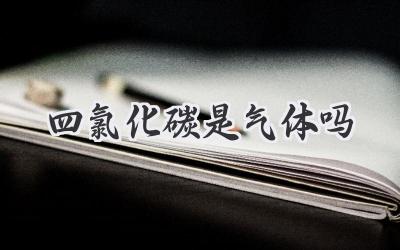 四氯化碳是气体吗